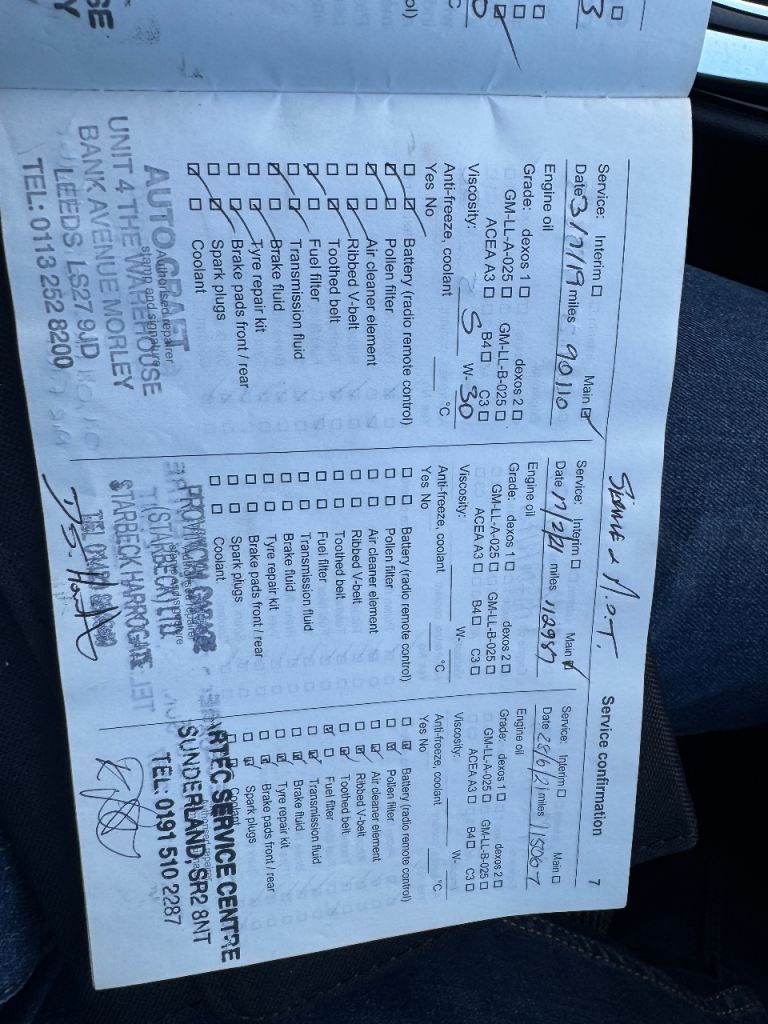 Service confirmation 7
Service & M.O.T.
Service: Interim □ Main ☑
Date 3/7/19 miles - 90110
Engine oil
Grade: dexos 1 □ dexos 2 □
GM-LL-A-025 □ GM-LL-B-025 □
ACEA A3 □ B4 □ C3 □
Viscosity: 5 W- 30
Anti-freeze, coolant °C
Yes No
Battery (radio remote control)
Pollen filter
Air cleaner element
Ribbed V-belt
Toothed belt
Fuel filter
Transmission fluid
Brake fluid
Tyre repair kit
Brake pads front / rear
Spark plugs
Coolant
Authorised repairer
stamp and signature
AUTO CRAFT
UNIT 4 THE WAREHOUSE
BANK AVENUE MORLEY
LEEDS LS27 9JD
TEL: 0113 252 8200
Service: Interim □ Main ☑
Date 17/2/21 miles 112987
Engine oil
Grade: dexos 1 □ dexos 2 □
GM-LL-A-025 □ GM-LL-B-025 □
ACEA A3 □ B4 □ C3 □
Viscosity: W-
Anti-freeze, coolant °C
Yes No
Battery (radio remote control)
Pollen filter
Air cleaner element
Ribbed V-belt
Toothed belt
Fuel filter
Transmission fluid
Brake fluid
Tyre repair kit
Brake pads front / rear
Spark plugs
Coolant
PROVINCIAL GARAGE
(STARBECK) LTD.
STARBECK HARROGATE
Service: Interim □ Main □
Date 28/6/21 miles 115067
Engine oil
Grade: dexos 1 □ dexos 2 □
GM-LL-A-025 □ GM-LL-B-025 □
ACEA A3 □ B4 □ C3 □
Viscosity: W-
Anti-freeze, coolant °C
Yes No
Battery (radio remote control)
Pollen filter
Air cleaner element
Ribbed V-belt
Toothed belt
Fuel filter
Transmission fluid
Brake fluid
Tyre repair kit
Brake pads front / rear
Spark plugs
Coolant
ARTEC SERVICE CENTRE
SUNDERLAND, SR2 8NT
TEL: 0191 510 2287